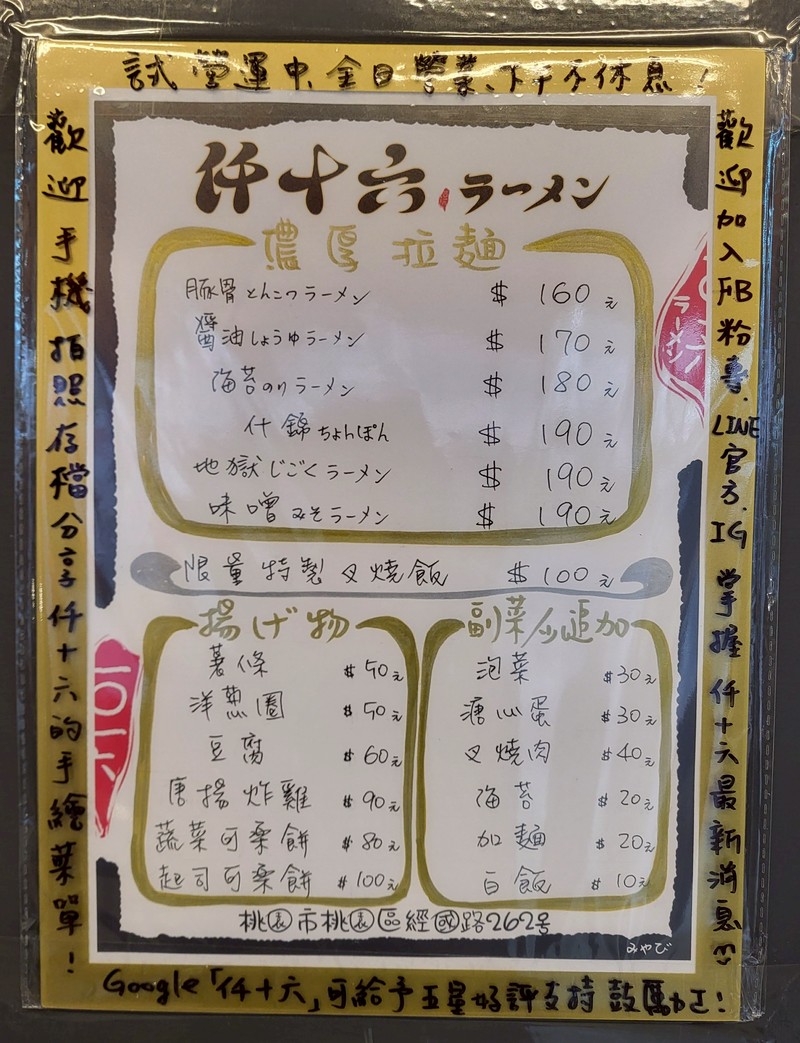 試營運中,全日營業、下午不休息!
歡迎手機拍照存檔分享仟十六的手繪菜單!
仟十六ラーメン
濃厚拉麵
豚骨とんこつラーメン $160元
醬油しょうゆラーメン $170元
海苔のりラーメン $180元
什錦ちょんぽん $190元
地獄じごくラーメン $190元
味噌みそラーメン $190元
限量特製叉燒飯 $100元
揚げ物
薯條 $50元
洋蔥圈 $50元
豆腐 $60元
唐揚炸雞 $90元
蔬菜可樂餅 $80元
起司可樂餅 $100元
副菜/追加
泡菜 $30元
溏心蛋 $30元
叉燒肉 $40元
海苔 $20元
加麵 $20元
白飯 $10元
桃園市桃園區經國路262号
みやび
一〇一六
ラーメン
歡迎加入FB粉專.LINE官方.IG掌握仟十六最新消息
Google「仟十六」可給予五星好評支持鼓勵加工!